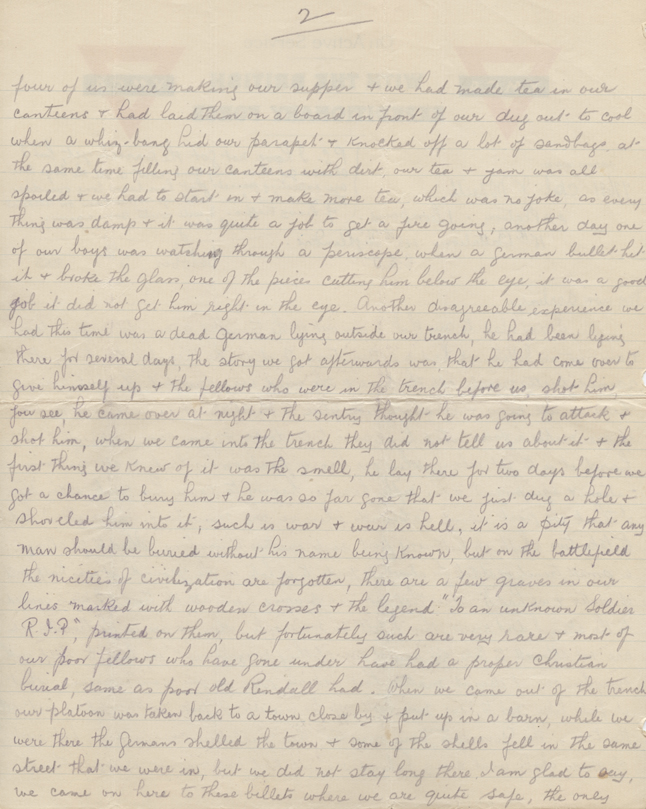 2
four of us were making our supper + we had made tea in our
canteens + had laid them on a board in front of our dug out to cool
when a whiz-bang hid our parapet + knocked off a lot of sandbags, at
the same time filling our canteens with dirt, our tea + jam was all
spoiled + we had to start in + make more tea, which was no joke, as every
thing was damp + it was quite a job to get a fire going, another day one
of our boys was watching through a periscope, when a german bullet hit
it + broke the glass, one of the pieces cutting him below the eye, it was a good
job it did not get him right in the eye. Another disagreeable experience we
had this time was a dead German lying outside our trench, he had been lying
there for several days, the story we got afterwards was, that he had come over to
give himself up + the fellows who were in the trench before us, shot him
you see, he came over at night + the sentry thought he was going to attack +
shot him, when we came into the trench they did not tell us about it + the
first thing we knew of it was the smell, he lay there for two days before we
got a chance to bury him + he was so far gone that we just dug a hole +
shoveled him into it, such is war + war is hell, it is a pity that any
man should be buried without his name being known, but on the battlefield
the niceties of civilization are forgotten, there are a few graves in our
lines marked with wooden crosses + the legend "To an unknown Soldier
R.I.P", printed on them, but fortunately such are very rare + most of
our poor fellows who have gone under have had a proper Christian
burial, same as poor old Rendall had. When we came out of the trench
our platoon was taken back to a town, close by + put up in a barn, while we
were there the Germans shelled the town + some of the shells fell in the same
street that we were in, but we did not stay long there I am glad to say,
we came on here to these billets where we are quite safe, the only